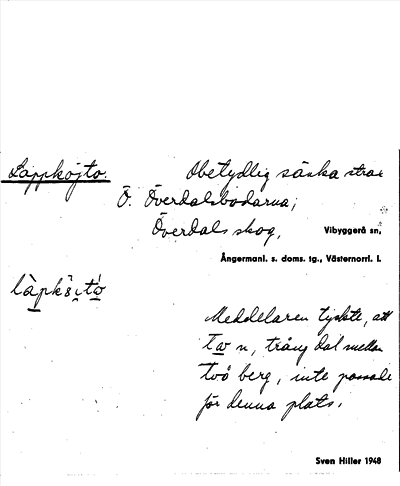 Lappkojto.
Obetydlig sänka strax
Ö. Överdalsbodarna;
Överdals skog,
Vibyggerå sn,
Ångermanl. s. doms. tg., Västernorrl. l.
Meddelaren tyckte, att
n, trång dal mellan
två berg, inte passade
för denna plats.
Sven Hiller 1948